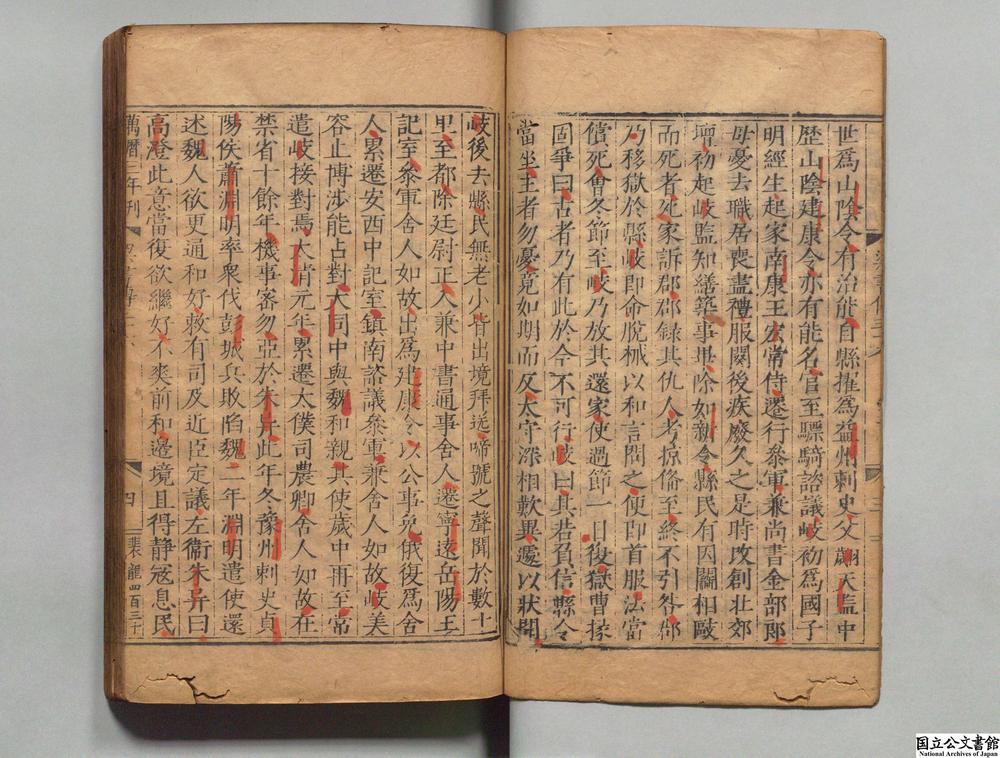 世爲山陰令有治能自縣擢爲益州刺史父翽天監中
歷山陰建康令亦有能名官至驃騎諮議岐初爲國子
明經生起家南康王宏常侍遷行參軍兼尚書金部郎
母憂去職居喪盡禮服闋後疾廢久之是時改創北郊
壇初起岐監知繕築事畢除如新令縣民有因鬬相毆
而死者死家訴郡郡錄其仇人考掠備至終不引咎郡
乃移獄於縣岐即命脫械以和言問之便即首服法當
償死會冬節至岐乃放其還家使過節一日復獄曹掾
固爭曰古者乃有此於今不可行岐曰其若負信縣令
當坐主者勿憂竟如期而反太守深相歎異遽以狀聞
岐後去縣民無老小皆出境拜送啼號之聲聞於數十
里至都除廷尉正入兼中書通事舍人遷寧遠岳陽王
記室參軍舍人如故出爲建康令以公事免俄復爲舍
人累遷安西中記室鎮南諮議參軍兼舍人如故岐美
容止博涉能占對大同中與魏和親其使歲中再至常
遣岐接對焉太清元年累遷太僕司農卿舍人如故在
禁省十餘年機事密勿亞於朱异此年冬豫州刺史貞
陽侯蕭淵明率衆伐彭城兵敗陷魏二年淵明遣使還
述魏人欲更通和好敕有司及近臣定議左衛朱异曰
高澄此意當復欲繼好不爽前和邊境且得靜寇息民
萬曆三年刊
四
裴龍四百三十
国立公文書館
National Archives of Japan